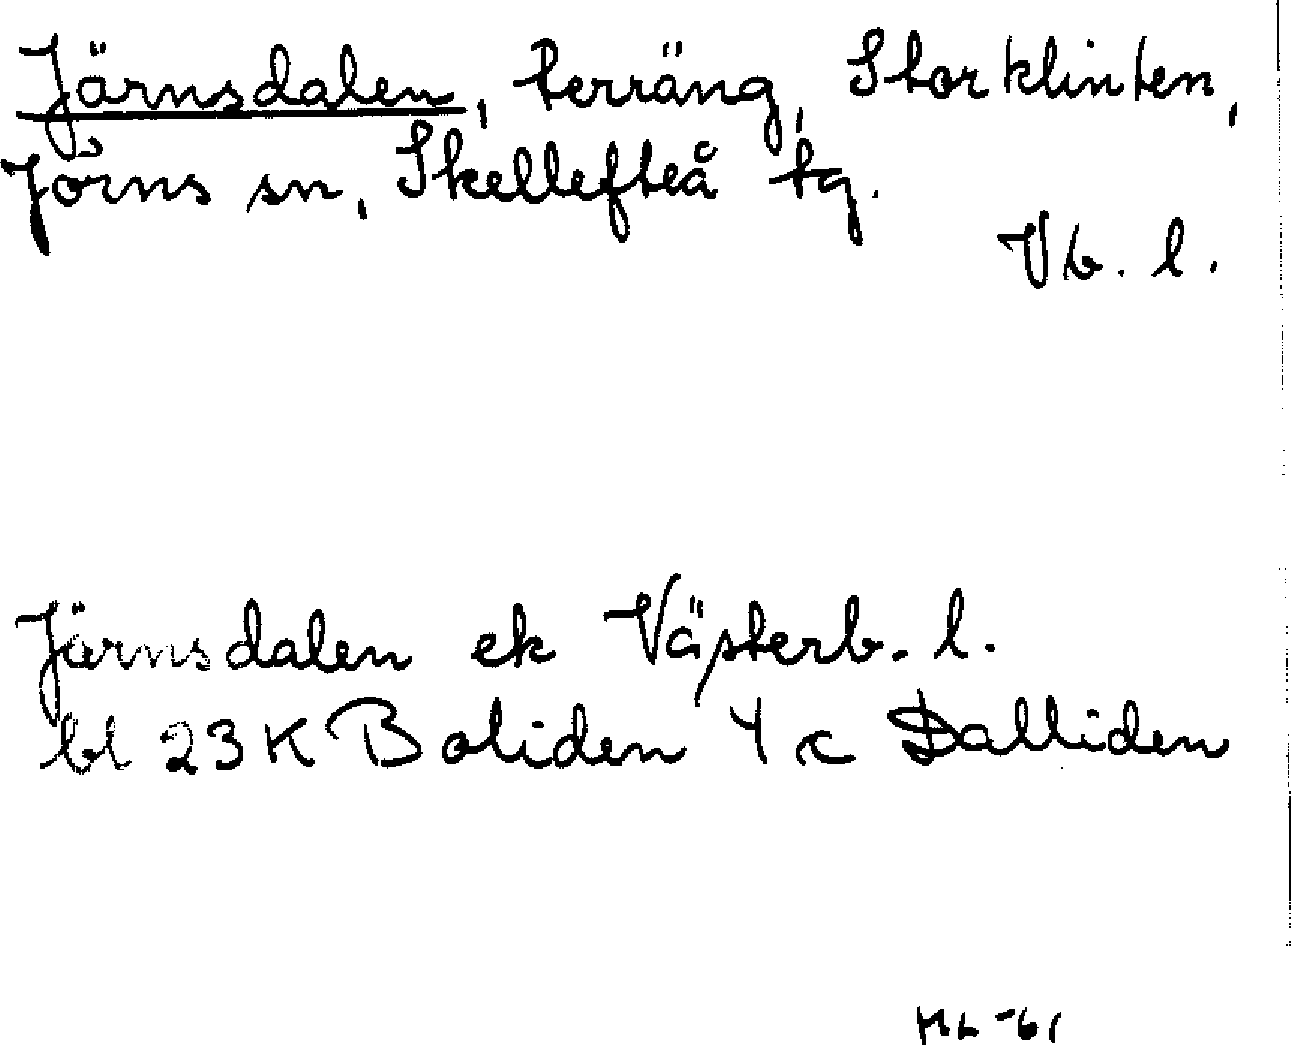 Järnsdalen, terräng, Storklinten,
Jörns sn, Skellefteå tg.
Vb. l.
Järnsdalen ek Västerb. l.
bl 23 K Boliden 4 c Dalliden
ML -61